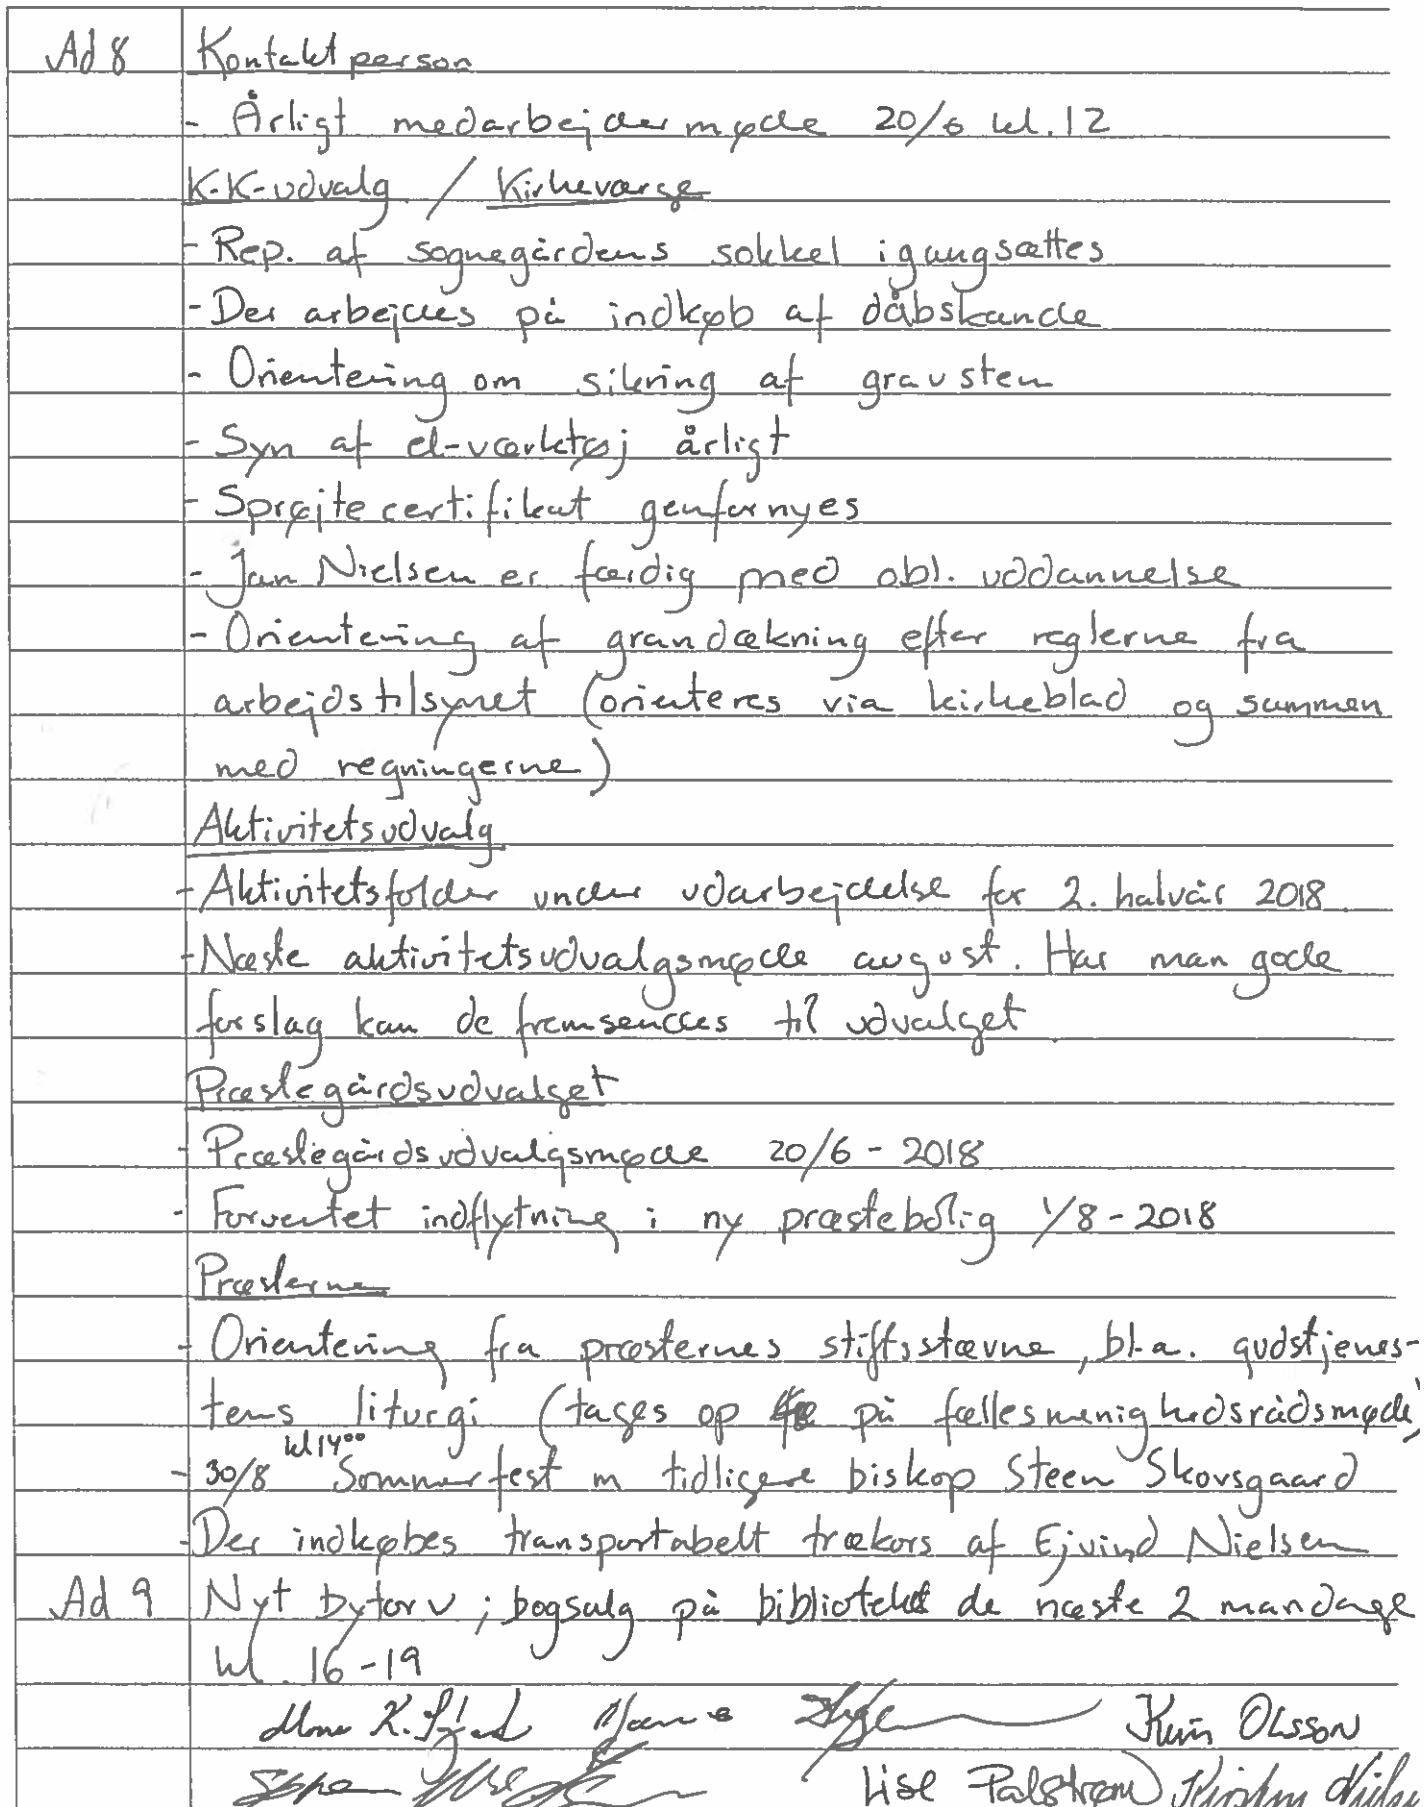 Ad 8 Kontaktperson
- Årligt medarbejdermøde 20/6 kl. 12
K-K-udvalg / Kirkeværge
- Rep. af sognegårdens sokkel igangsættes
- Der arbejdes på indkøb af dåbskande
- Orientering om sikring af gravsten
- Syn af el-værktøj årligt
- Sprøjtecertifikat genfornyes
- Jan Nielsen er færdig med obl. uddannelse
- Orientering af grandækning efter reglerne fra
arbejdstilsynet (orienteres via kirkeblad og sammen
med regningerne)
Aktivitetsudvalg
- Aktivitetsfolder under udarbejdelse for 2. halvår 2018.
- Næste aktivitetsudvalgsmøde august. Har man gode
forslag kan de fremsendes til udvalget
Præstegårdsudvalget
- Præstegårdsudvalgsmøde 20/6 - 2018
- Forventet indflytning i ny præstebolig 1/8 - 2018
Præsterne
- Orientering fra præsternes stiftsstævne, bl.a. gudstjenes-
tens liturgi (tages op på fællesmenighedsrådsmøde)
- 30/8 kl 14⁰⁰ Sommerfest m tidligere biskop Steen Skovsgaard
- Der indkøbes transportabelt trækors af Ejvind Nielsen
Ad 9 Nyt bytorv ; bogsalg på biblioteket de næste 2 mandage
kl. 16-19
K. Olsson
Lise Palstrøm Kirsten